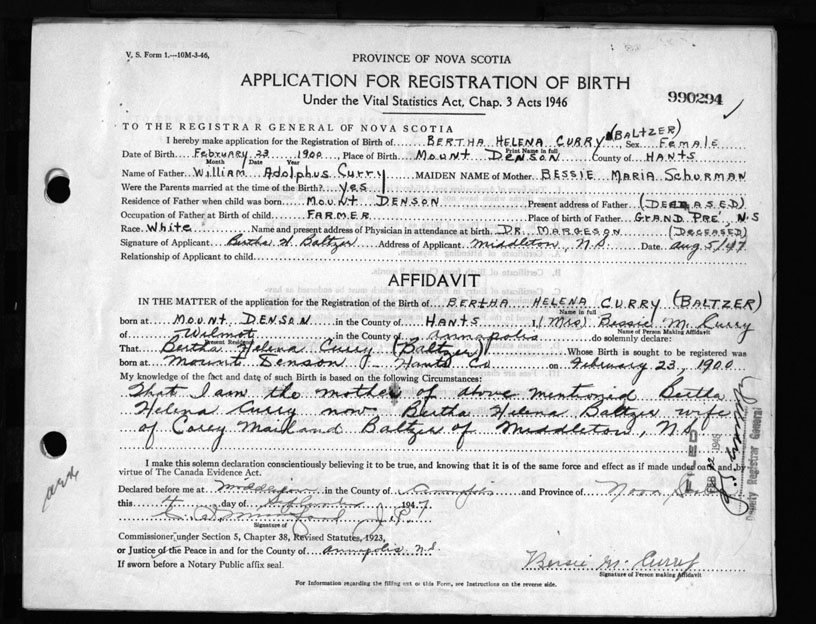 V. S. Form 1.—10M-3-46,
PROVINCE OF NOVA SCOTIA
APPLICATION FOR REGISTRATION OF BIRTH
Under the Vital Statistics Act, Chap. 3 Acts 1946
990294
TO THE REGISTRAR GENERAL OF NOVA SCOTIA
I hereby make application for the Registration of Birth of BERTHA HELENA CURRY (BALTZER) Sex Female
Print Name in full
Date of Birth February 23 1900 Place of Birth MOUNT DENSON County of HANTS
Month Date Year
Name of Father William Adolphus Curry MAIDEN NAME of Mother BESSIE MARIA SCHURMAN
Were the Parents married at the time of Birth? yes
Residence of Father when child was born MOUNT DENSON Present address of Father (DECEASED)
Occupation of Father at Birth of child FARMER Place of birth of Father GRAND PRÉ, N.S
Race White Name and present address of Physician in attendance at birth DR. MARGESON (DECEASED)
Signature of Applicant Bertha H. Baltzer Address of Applicant Middleton, N.S. Date Aug 5/47
Relationship of Applicant to child
AFFIDAVIT
IN THE MATTER of the application for the Registration of the Birth of BERTHA HELENA CURRY (BALTZER)
Name in full
born at MOUNT DENSON in the County of HANTS I (Mrs) Bessie M. Curry
Name of Person Making Affidavit
of Wilmot in the County of Annapolis do solemnly declare:
Present Residence
That Bertha Helena Curry (Baltzer) Whose Birth is sought to be registered was
born at Mount Denson Hants Co on February 23, 1900
My knowledge of the fact and date of such Birth is based on the following Circumstances:
That I am the mother of above mentioned Bertha
Helena Curry now Bertha Helena Baltzer wife
of Corey Mailand Baltzer of Middleton, N.S.
I make this solemn declaration conscientiously believing it to be true, and knowing that it is of the same force and effect as if made under oath and by
virtue of The Canada Evidence Act.
Declared before me at Middleton in the County of Annapolis and Province of Nova
this day of 1947
J.P.
Signature of
Commissioner under Section 5, Chapter 38, Revised Statutes, 1923,
or Justice of the Peace in and for the County of Annapolis N.S.
If sworn before a Notary Public affix seal.
Bessie M. Curry
Signature of Person making Affidavit
For Information regarding the filling out of this Form, see Instructions on the reverse side.
Deputy Registrar General